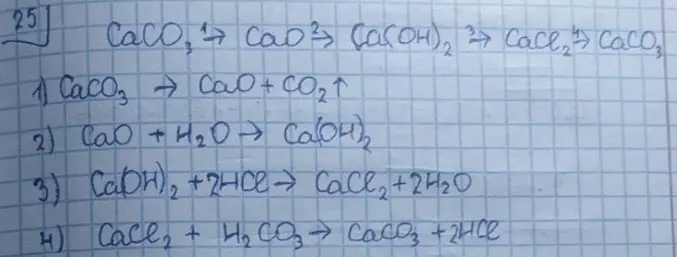 25
CaCO₃ ¹→ CaO ²→ Ca(OH)₂ ³→ CaCl₂ ⁴→ CaCO₃
1) CaCO₃ → CaO + CO₂↑
2) CaO + H₂O → Ca(OH)₂
3) Ca(OH)₂ + 2HCl → CaCl₂ + 2H₂O
4) CaCl₂ + H₂CO₃ → CaCO₃ + 2HCl